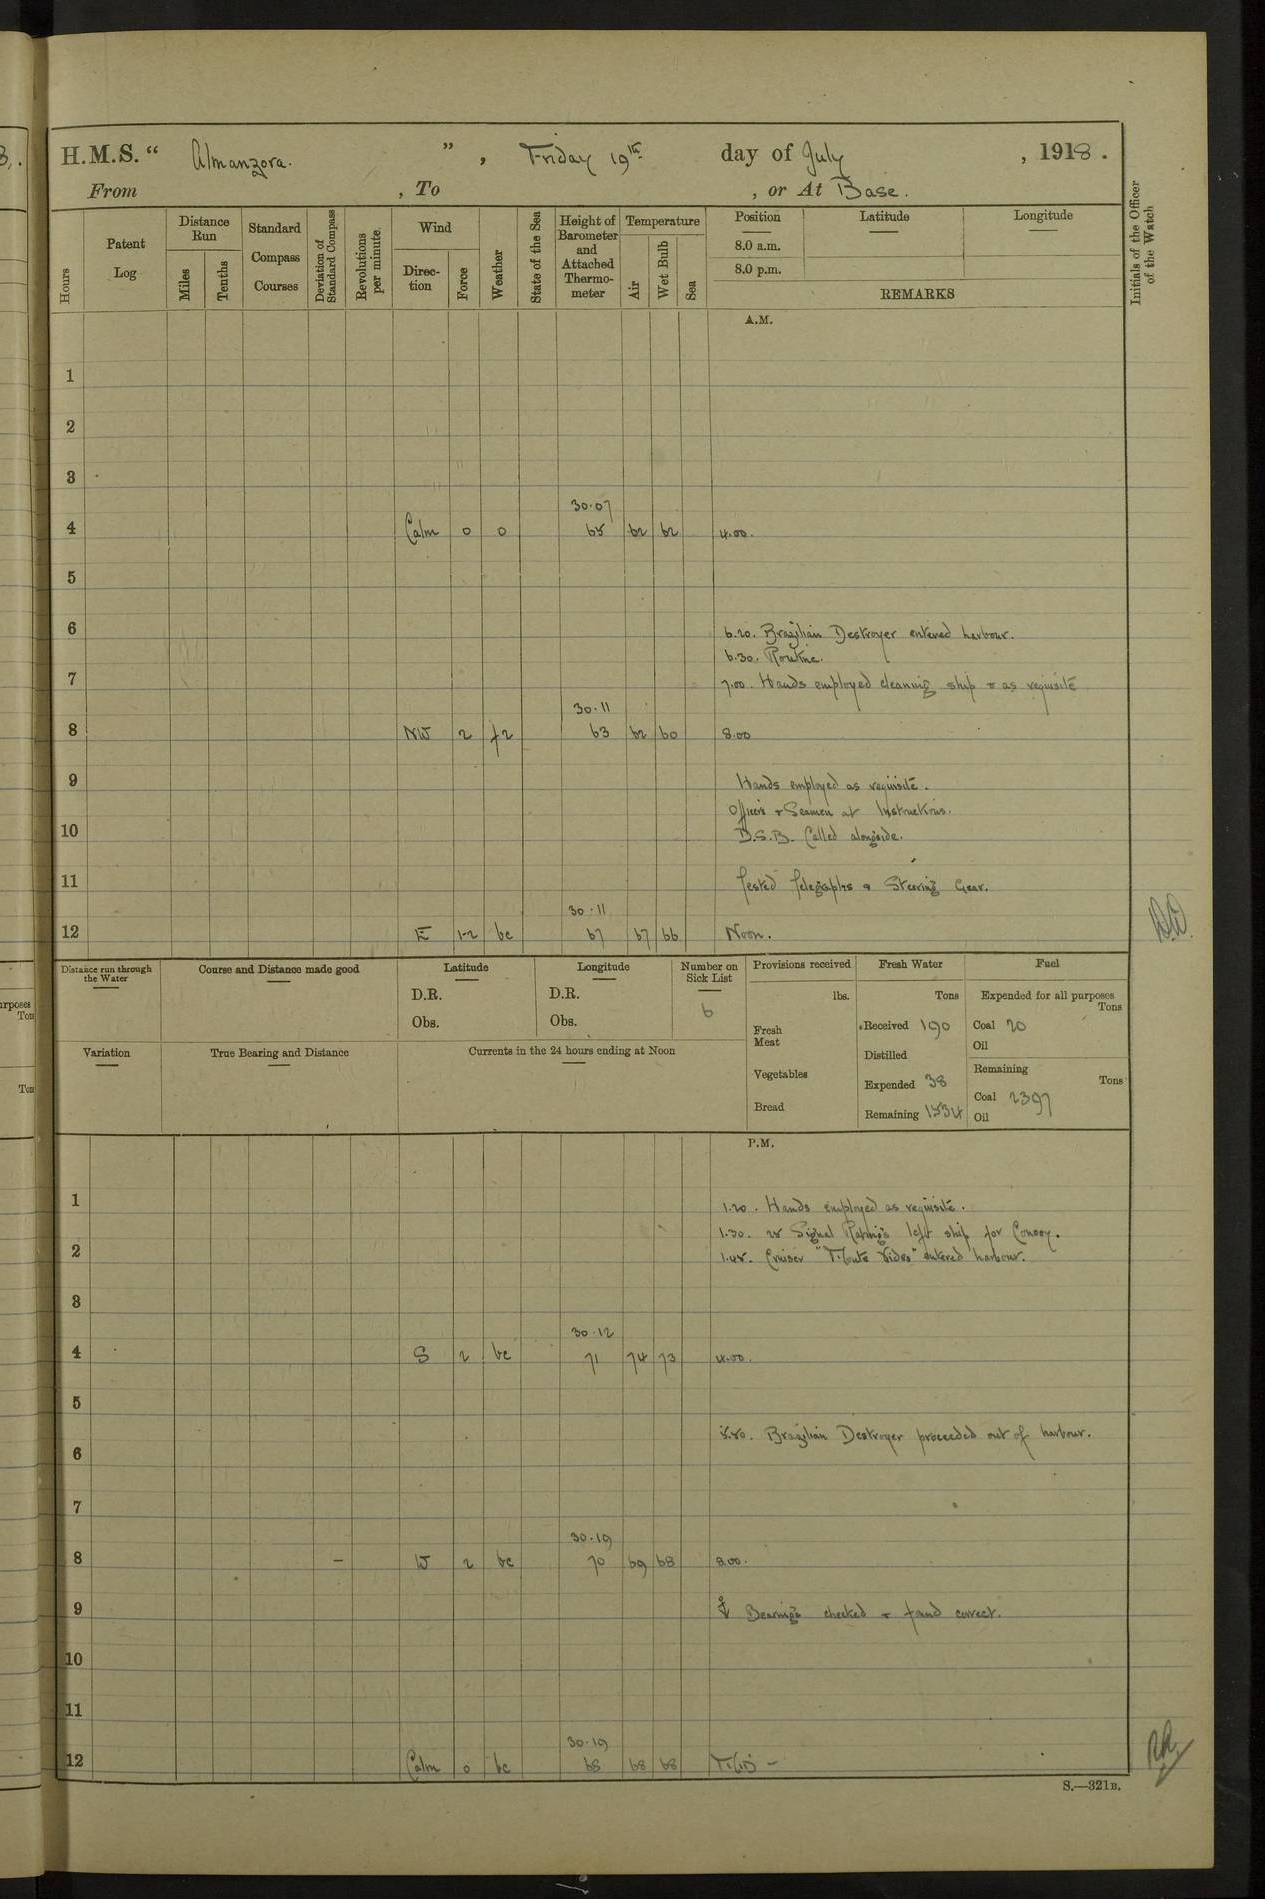 H.M.S. “ Almanzora. ” , Friday 19th day of July , 1918 .
From , To , or At Base .
Hours
Patent Log
Distance Run
Miles
Tenths
Standard Compass Courses
Deviation of Standard Compass
Revolutions per minute.
Wind
Direc-tion
Force
Weather
State of the Sea
Height of Barometer and Attached Thermo-meter
Temperature
Air
Wet Bulb
Sea
Position
8.0 a.m.
8.0 p.m.
Latitude
Longitude
REMARKS
Initials of the Officer of the Watch
A.M.
1
2
3
30.07
4 Calm 0 0 65 62 62 4.00.
5
6
6.20. Brazilian Destroyer entered harbour.
6.30. Routine.
7
7.00. Hands employed cleaning ship & as requisite
30.11
8 NW 2 f2 63 62 60 8.00
9
Hands employed as requisite.
Officers & Seamen at Instructions.
10
D.S.B. Called alongside.
11
Tested Telegraphs & Steering Gear.
30.11
12 E 1-2 bc 67 67 66 Noon.
Distance run through the Water
Course and Distance made good
Latitude
D.R.
Obs.
Longitude
D.R.
Obs.
Number on Sick List
6
Provisions received
lbs.
Fresh Meat
Vegetables
Bread
Fresh Water
Tons
Received 190
Distilled
Expended 38
Remaining 1534
Fuel
Expended for all purposes
Tons
Coal 20
Oil
Remaining
Tons
Coal 2397
Oil
Variation
True Bearing and Distance
Currents in the 24 hours ending at Noon
P.M.
1
1.20. Hands employed as requisite.
1.30. Signal Ratings left ship for Convoy.
2
1.45. Cruiser "Monte Video" entered harbour.
3
30.12
4 S 2 bc 71 74 73 4.00.
5
5.50. Brazilian Destroyer proceeded out of harbour.
6
7
30.19
8 – W 2 bc 70 69 68 8.00.
9
Bearings checked & found correct.
10
11
30.19
12 Calm 0 bc 68 68 68
S.—321B.